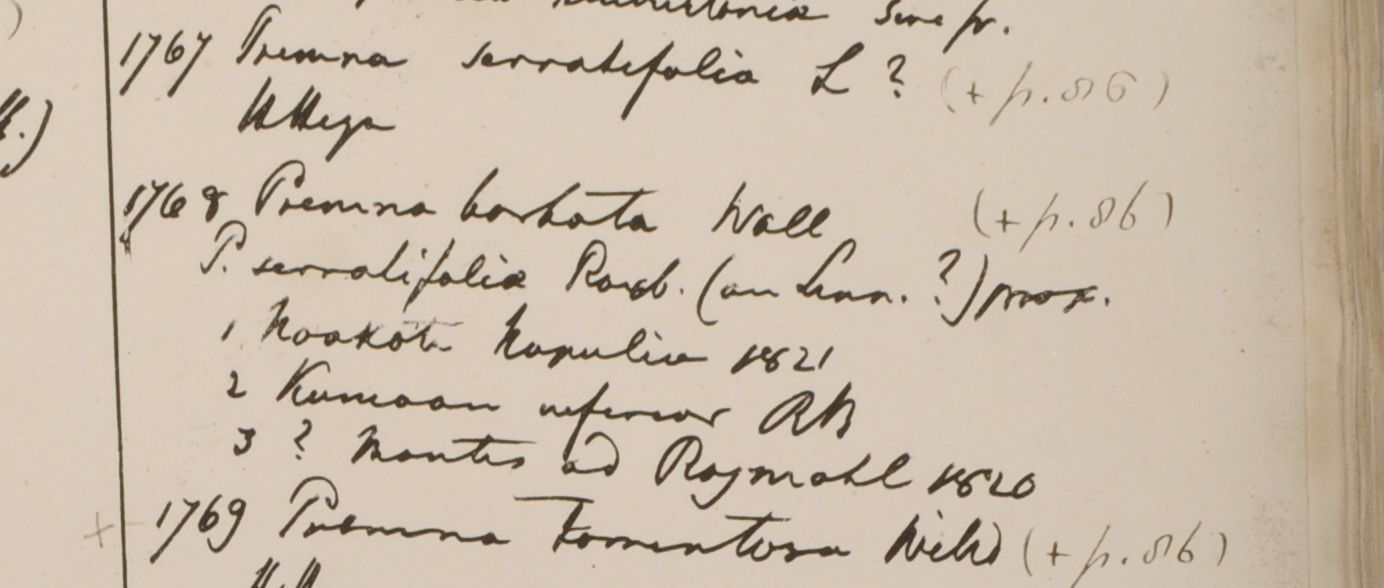 Sine fr.
1767 Premna serratifolia L ? (+ p. 86)
H Heyn
1768 Premna barbata Wall (+ p. 86)
P. serratifolia Roxb. (an Linn. ?) prox.
1 Noakote Napulia 1821
2 Kumaon inferior RB
3 ? Montes ad Rajmahl 1820
1769 Premna tomentosa Willd (+ p. 86)